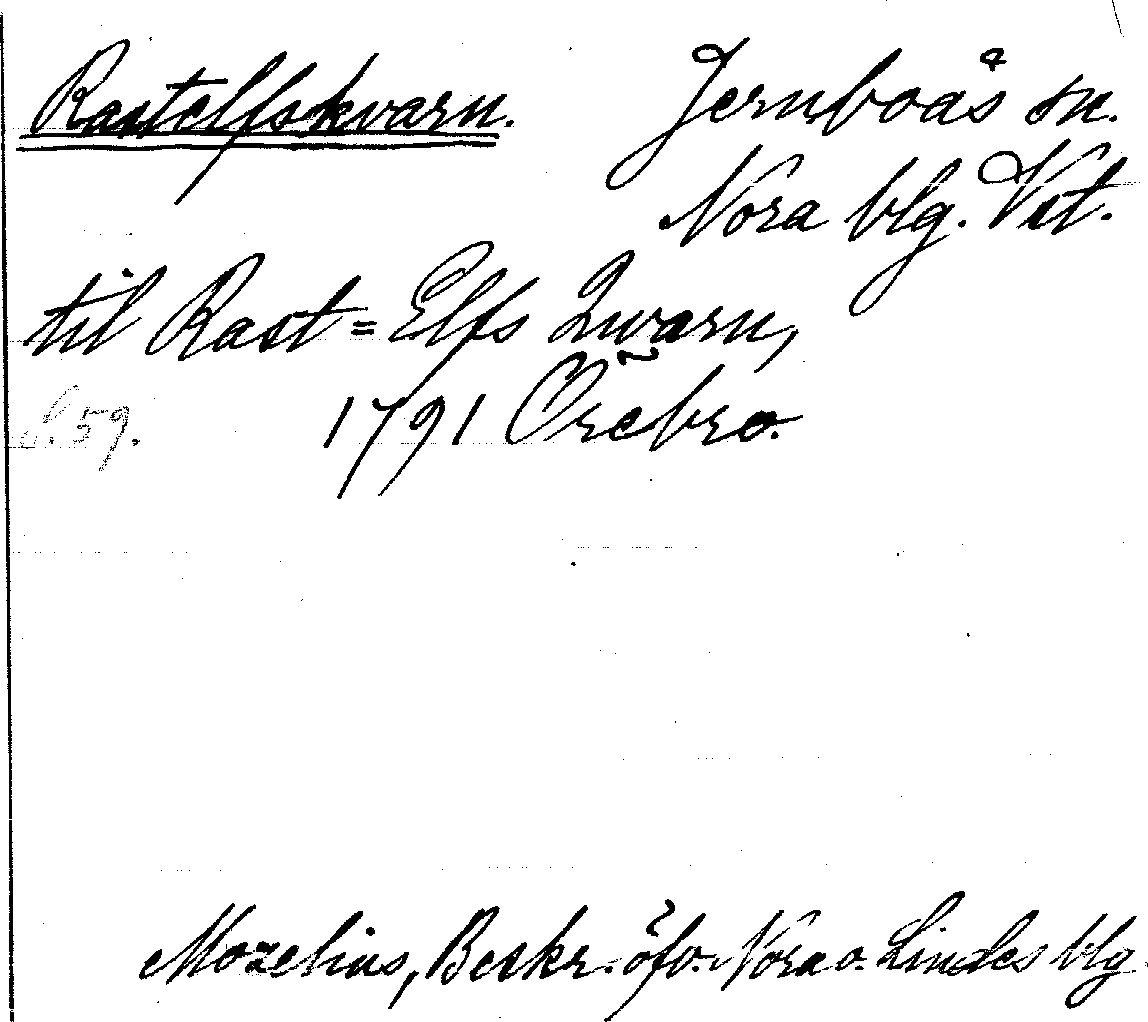 Rastelfskvarn. Jernboås sn.
Nora blg. Vst.
til Rast=Elfs Qwarn,
s. 59. 1791 Örebro.
Mozelius, Beskr. öfv. Nora o. Lindes blg